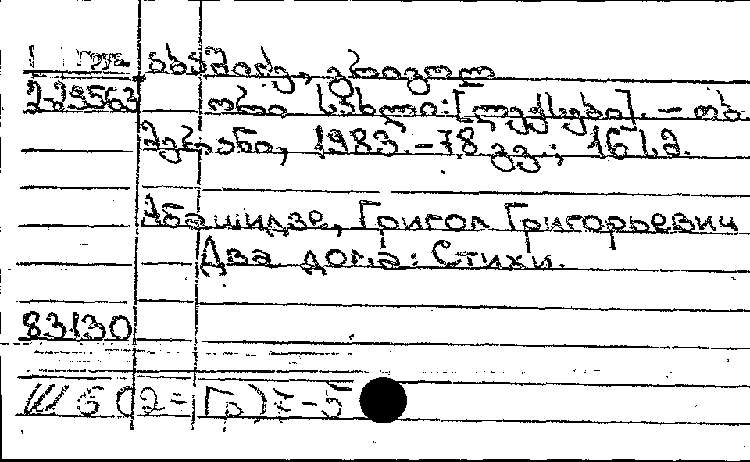 Груз. აბაშიძე, გრიგოლ
2-29563 ორი სახლი: [ლექსები]. – თბ.
მერანი, 1983. – 78 გვ.; 16 სმ.
Абашидзе, Григол Григорьевич
Два дома: Стихи.
83130
Ш 6(2=Гр)7-5